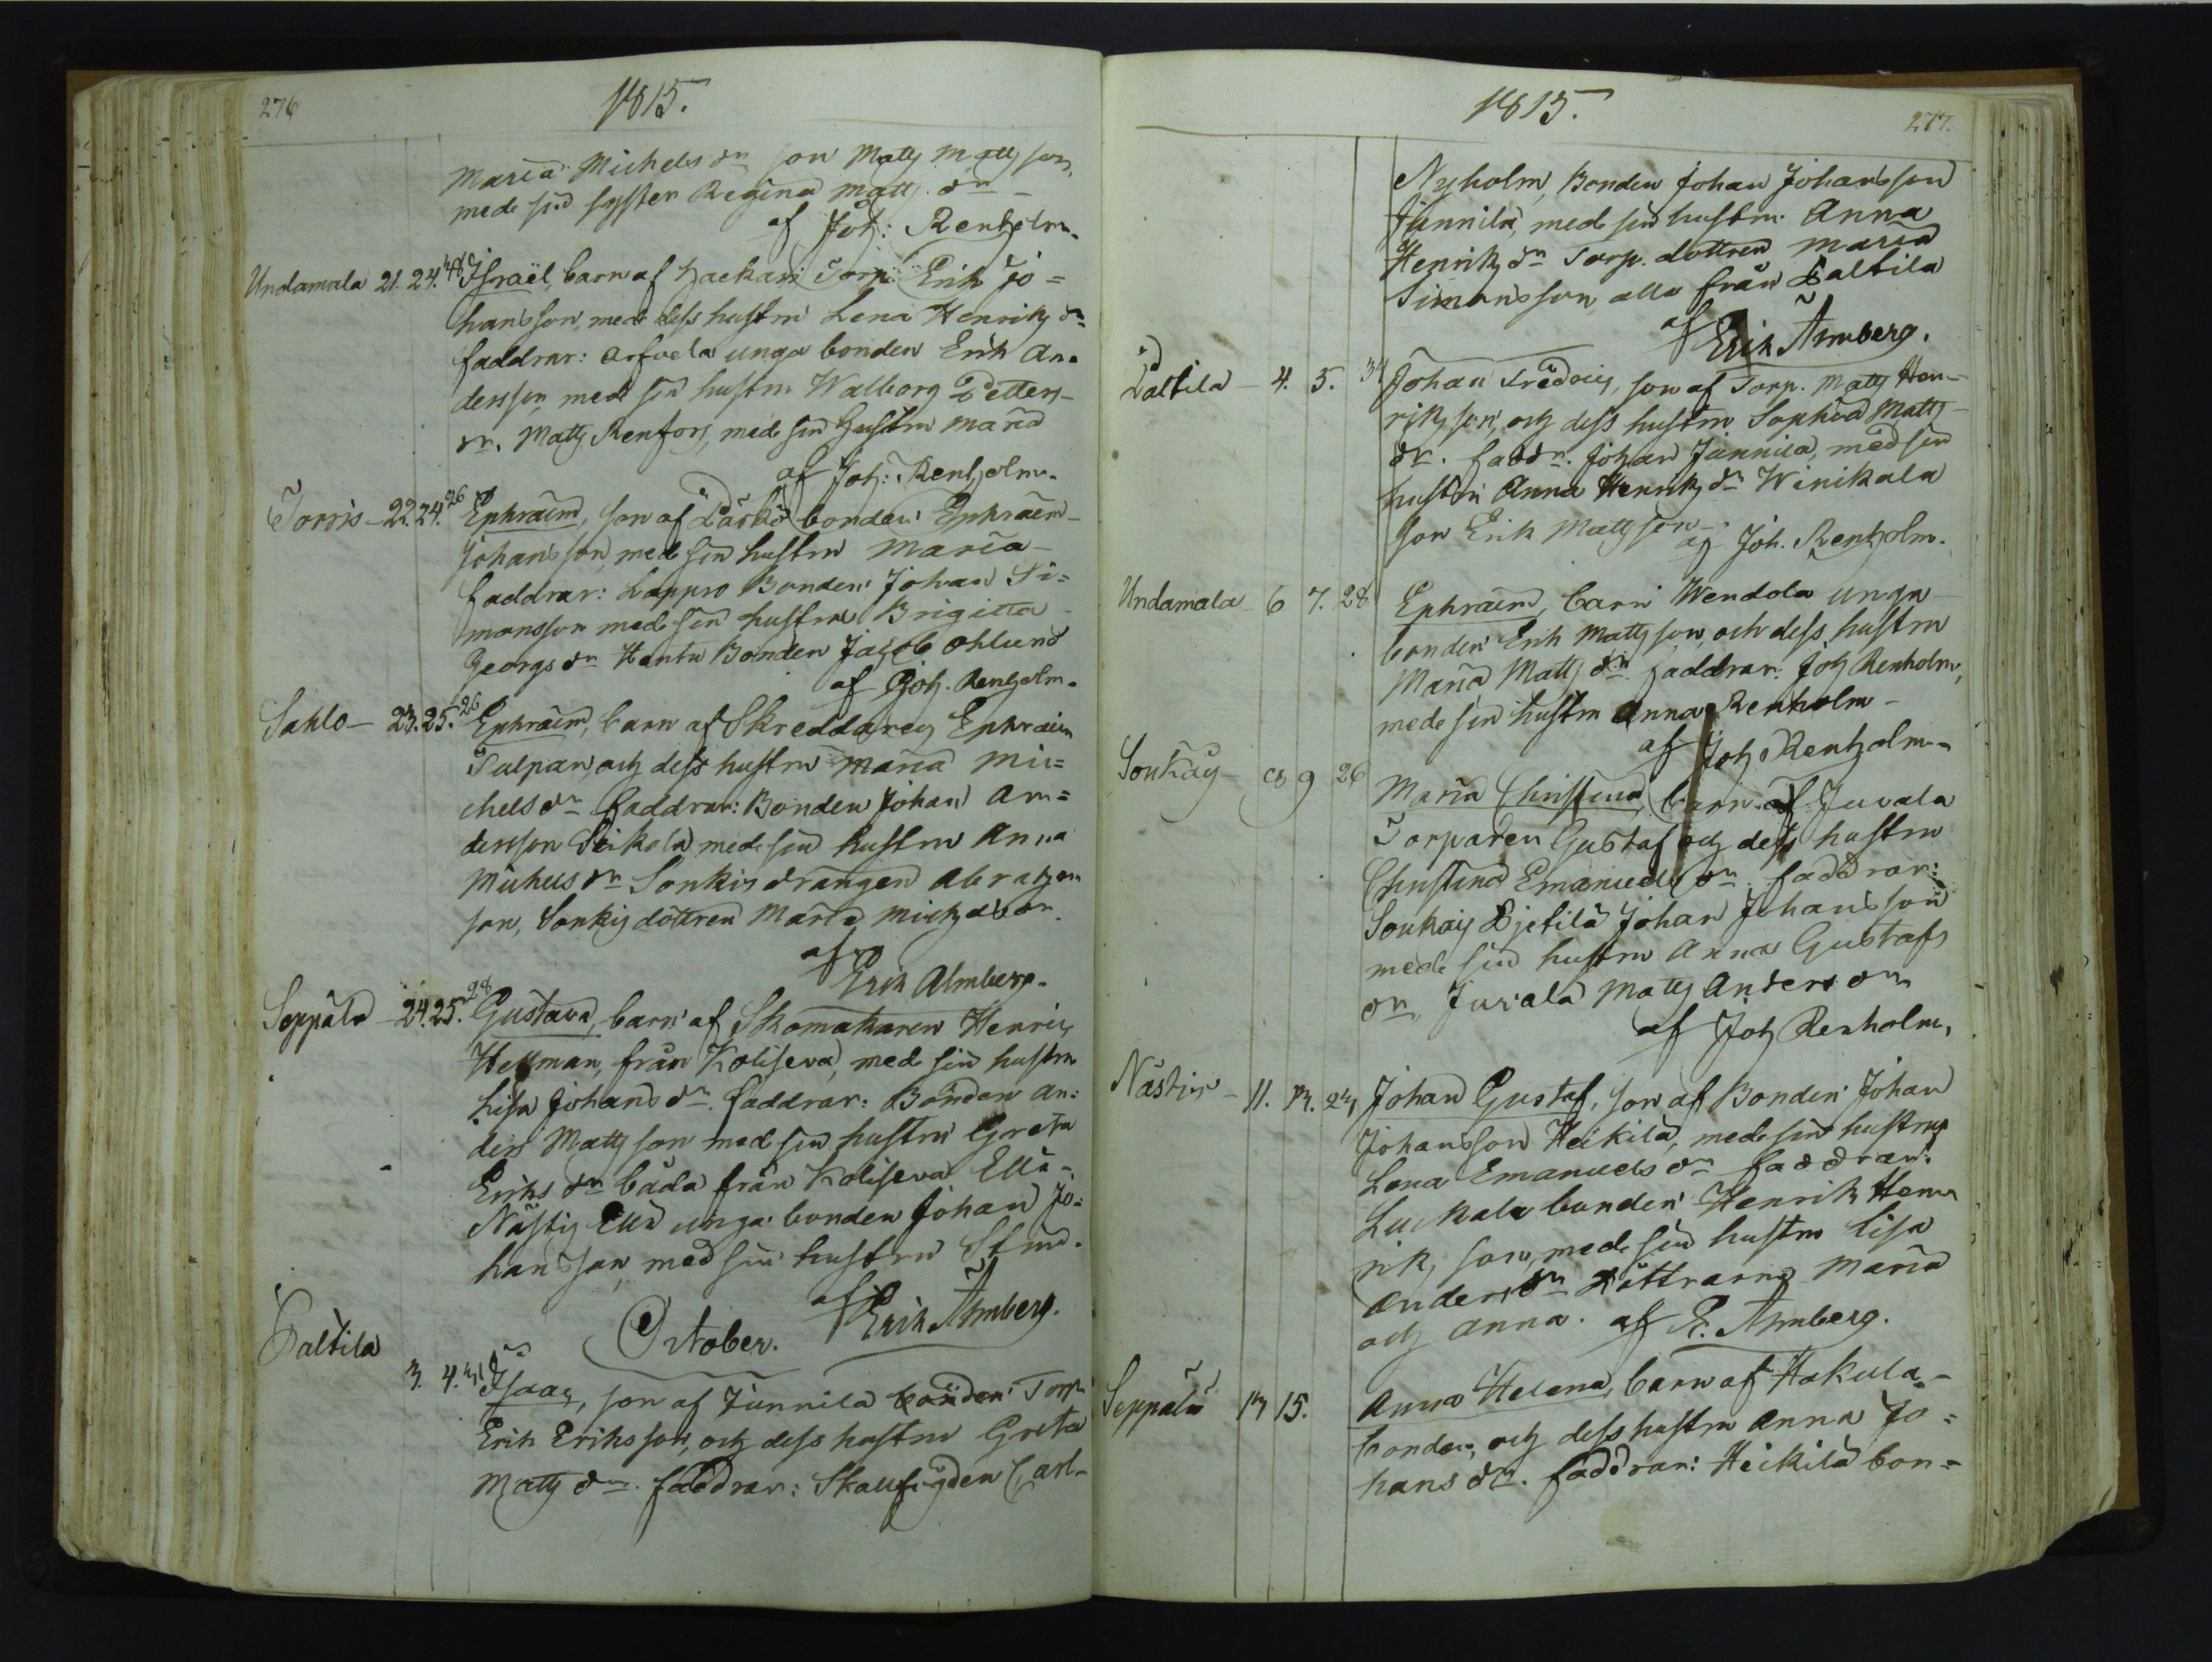 276
1815.
Maria Michels dr son Matts Matts son,
mede sin syster Regina Matts dr
af Joh: Renholm.
Undamala 21. 24. 48 Israël, barn af Torp. Erik Jo=
hansson, med dess hustru Lena Henriks dr
faddrar: Arfvela unga bonden Erik An=
dersson, mede sin hustru Walborg Petters-
dr. Matts Renfors, mede sin hustru Maria
af Joh: Renholm.
Torris - 22. 24. 26 Ephraim, son af bonden Ephraim
Johansson, med sin hustru Maria -
faddrar: Lappro Bonden Johan Si=
monsson mede sin hustru Brigitta
Georgs dr Hantu Bonden Jacob Ohlund
af Joh. Renholm.
Sahlo - 23. 25. 26 Ephraim, barn af Skreddaren Ephraim
Tulpan, och dess hustru Maria Mi=
chels dr faddrar: Bonden Johan An=
dersson mede sin hustru Anna
Michels dr drängen
son, döttren Maria Michels dr
af
Erik Almberg.
Seppälä - 24. 25. 28 Gustava, barn af Skomakaren Henric
Hellman, från Koliseva, mede sin hustru
Lisa Johans dr. faddrar: Bonden An=
ders Matts son med sin hustru Greta
Eriks dr båda från Koliseva Ellä-
Nästis Ellä unga bonden Johan Jo=
hansson, med sin hustru Stina.
af Erik Almberg.
October.
Paltila 3. 4. Isaac, son af Junnila Torp.
Erik Eriksson, och dess hustru Greta
Matts dr. faddrar: Carl-
1815.
277.
Nyholm, Bonden Johan Johansson
Junnila, mede sin hustru Anna
Henriks dr Torp. dottren Maria
Simonsson, alla från Paltila
af
Erik Almberg.
Paltila - 4. 5. 34 Johan Fredric, son af Torp. Matts Hen-
riks son, och dess hustru Sophia Matts
dr. faddr. Johan Junnila, med sin
hustru Anna Henriks dr Winikala
son Erik Matts son -
af Joh. Renholm.
Undamala 6 7. 28 Ephraim, barn Wendola unga
bonden Erik Matts son, och dess hustru
Maria Matts dr. faddrar: Joh Renholm,
mede sin hustru Anna Renholm -
af Joh Renholm.
Soukas 8 9 26 Maria Christina, barn af Juvala
Torparen Gustaf och dess hustru
Christina Emanuels dr faddrar:
Soukais Johan Johansson
mede sin hustru Anna Gustafs
dr, Juvala Matts Anders dr
af Joh Renholm,
Nästis - 11. 13. 23 Johan Gustaf, son af Bonden Johan
Johansson Heikilä, mede sin hustru
Lena Emanuels dr faddrar:
Luckala bonden Henrik Hen
rik, son, mede sin hustru Lisa
Anders dr döttrarna Maria
och Anna. af E. Almberg.
Seppälä 13 15. Anna Helena, barn af Hakula
bonden, och dess hustru Anna Jo=
hans dr. faddrar: Heikilä bon=